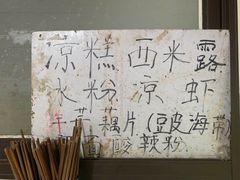 凉糕 西米露
冰粉 凉虾
藕片(豆皮海带)
酸辣粉